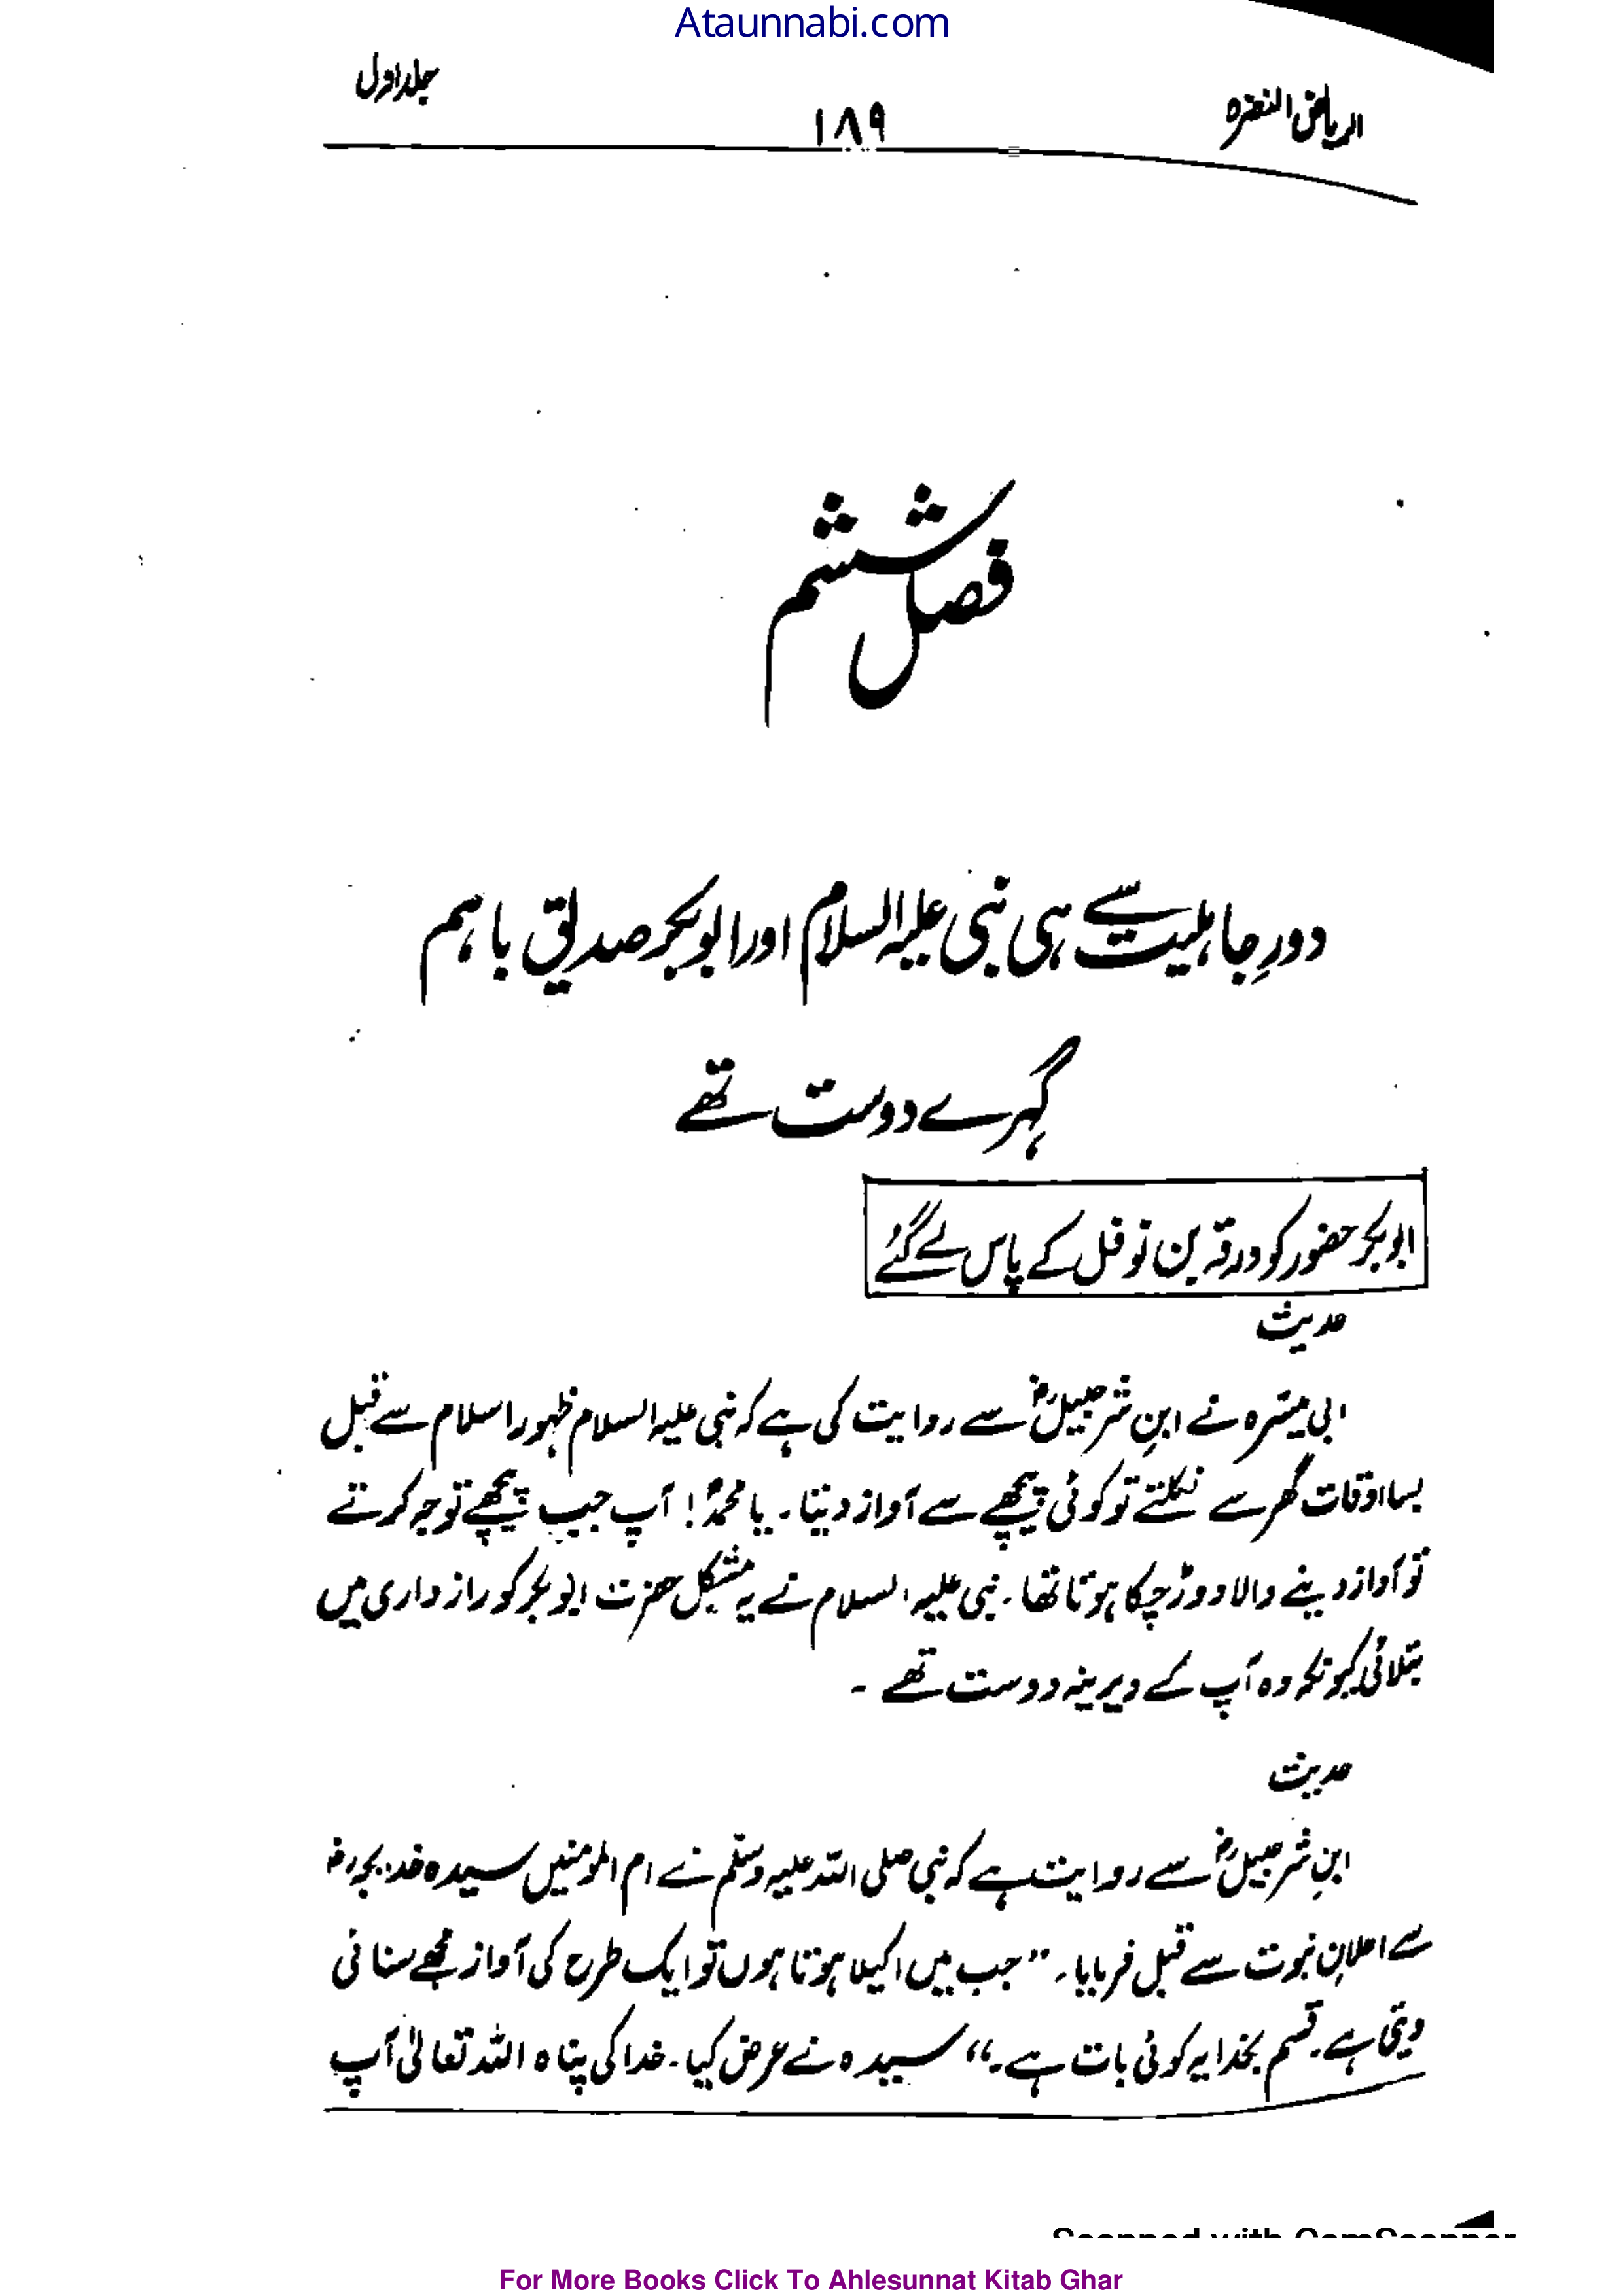 Ataunnabi.com
الریاض النضرہ ۱۸۹ جلد اول
فصل ششم
دورِ جاہلیت سے ہی نبی علیہ السلام اور ابوبکر صدیق باہم
گہرے دوست تھے
ابوبکر حضور کو ورقہ بن نوفل کے پاس لے گئے
حدیث
ابی میسرہ نے ابنِ شرجیلؓ سے روایت کی ہے کہ نبی علیہ السلام ظہور اسلام سے قبل
بسا اوقات گھر سے نکلتے تو کوئی پیچھے سے آواز دیتا۔ یا محمدؐ! آپ جب پیچھے توجہ کرتے
تو آواز دینے والا دوڑ چکا ہوتا تھا۔ نبی علیہ السلام نے یہ مشکل حضرت ابوبکر کو راز داری میں
بتلائی کیونکہ وہ آپ کے دیرینہ دوست تھے ۔
حدیث
ابنِ شرجیلؓ سے روایت ہے کہ نبی صلی اللہ علیہ وسلم نے ام المومنین سیدہ خدیجہ رضؓ
سے اعلانِ نبوت سے قبل فرمایا۔ ”جب میں اکیلا ہوتا ہوں تو ایک طرح کی آواز مجھے سنائی
دیتی ہے۔ قسم بخدا یہ کوئی بات ہے۔“ سیدہ نے عرض کیا۔ خدا کی پناہ اللہ تعالیٰ آپ
Scanned with CamScanner
For More Books Click To Ahlesunnat Kitab Ghar